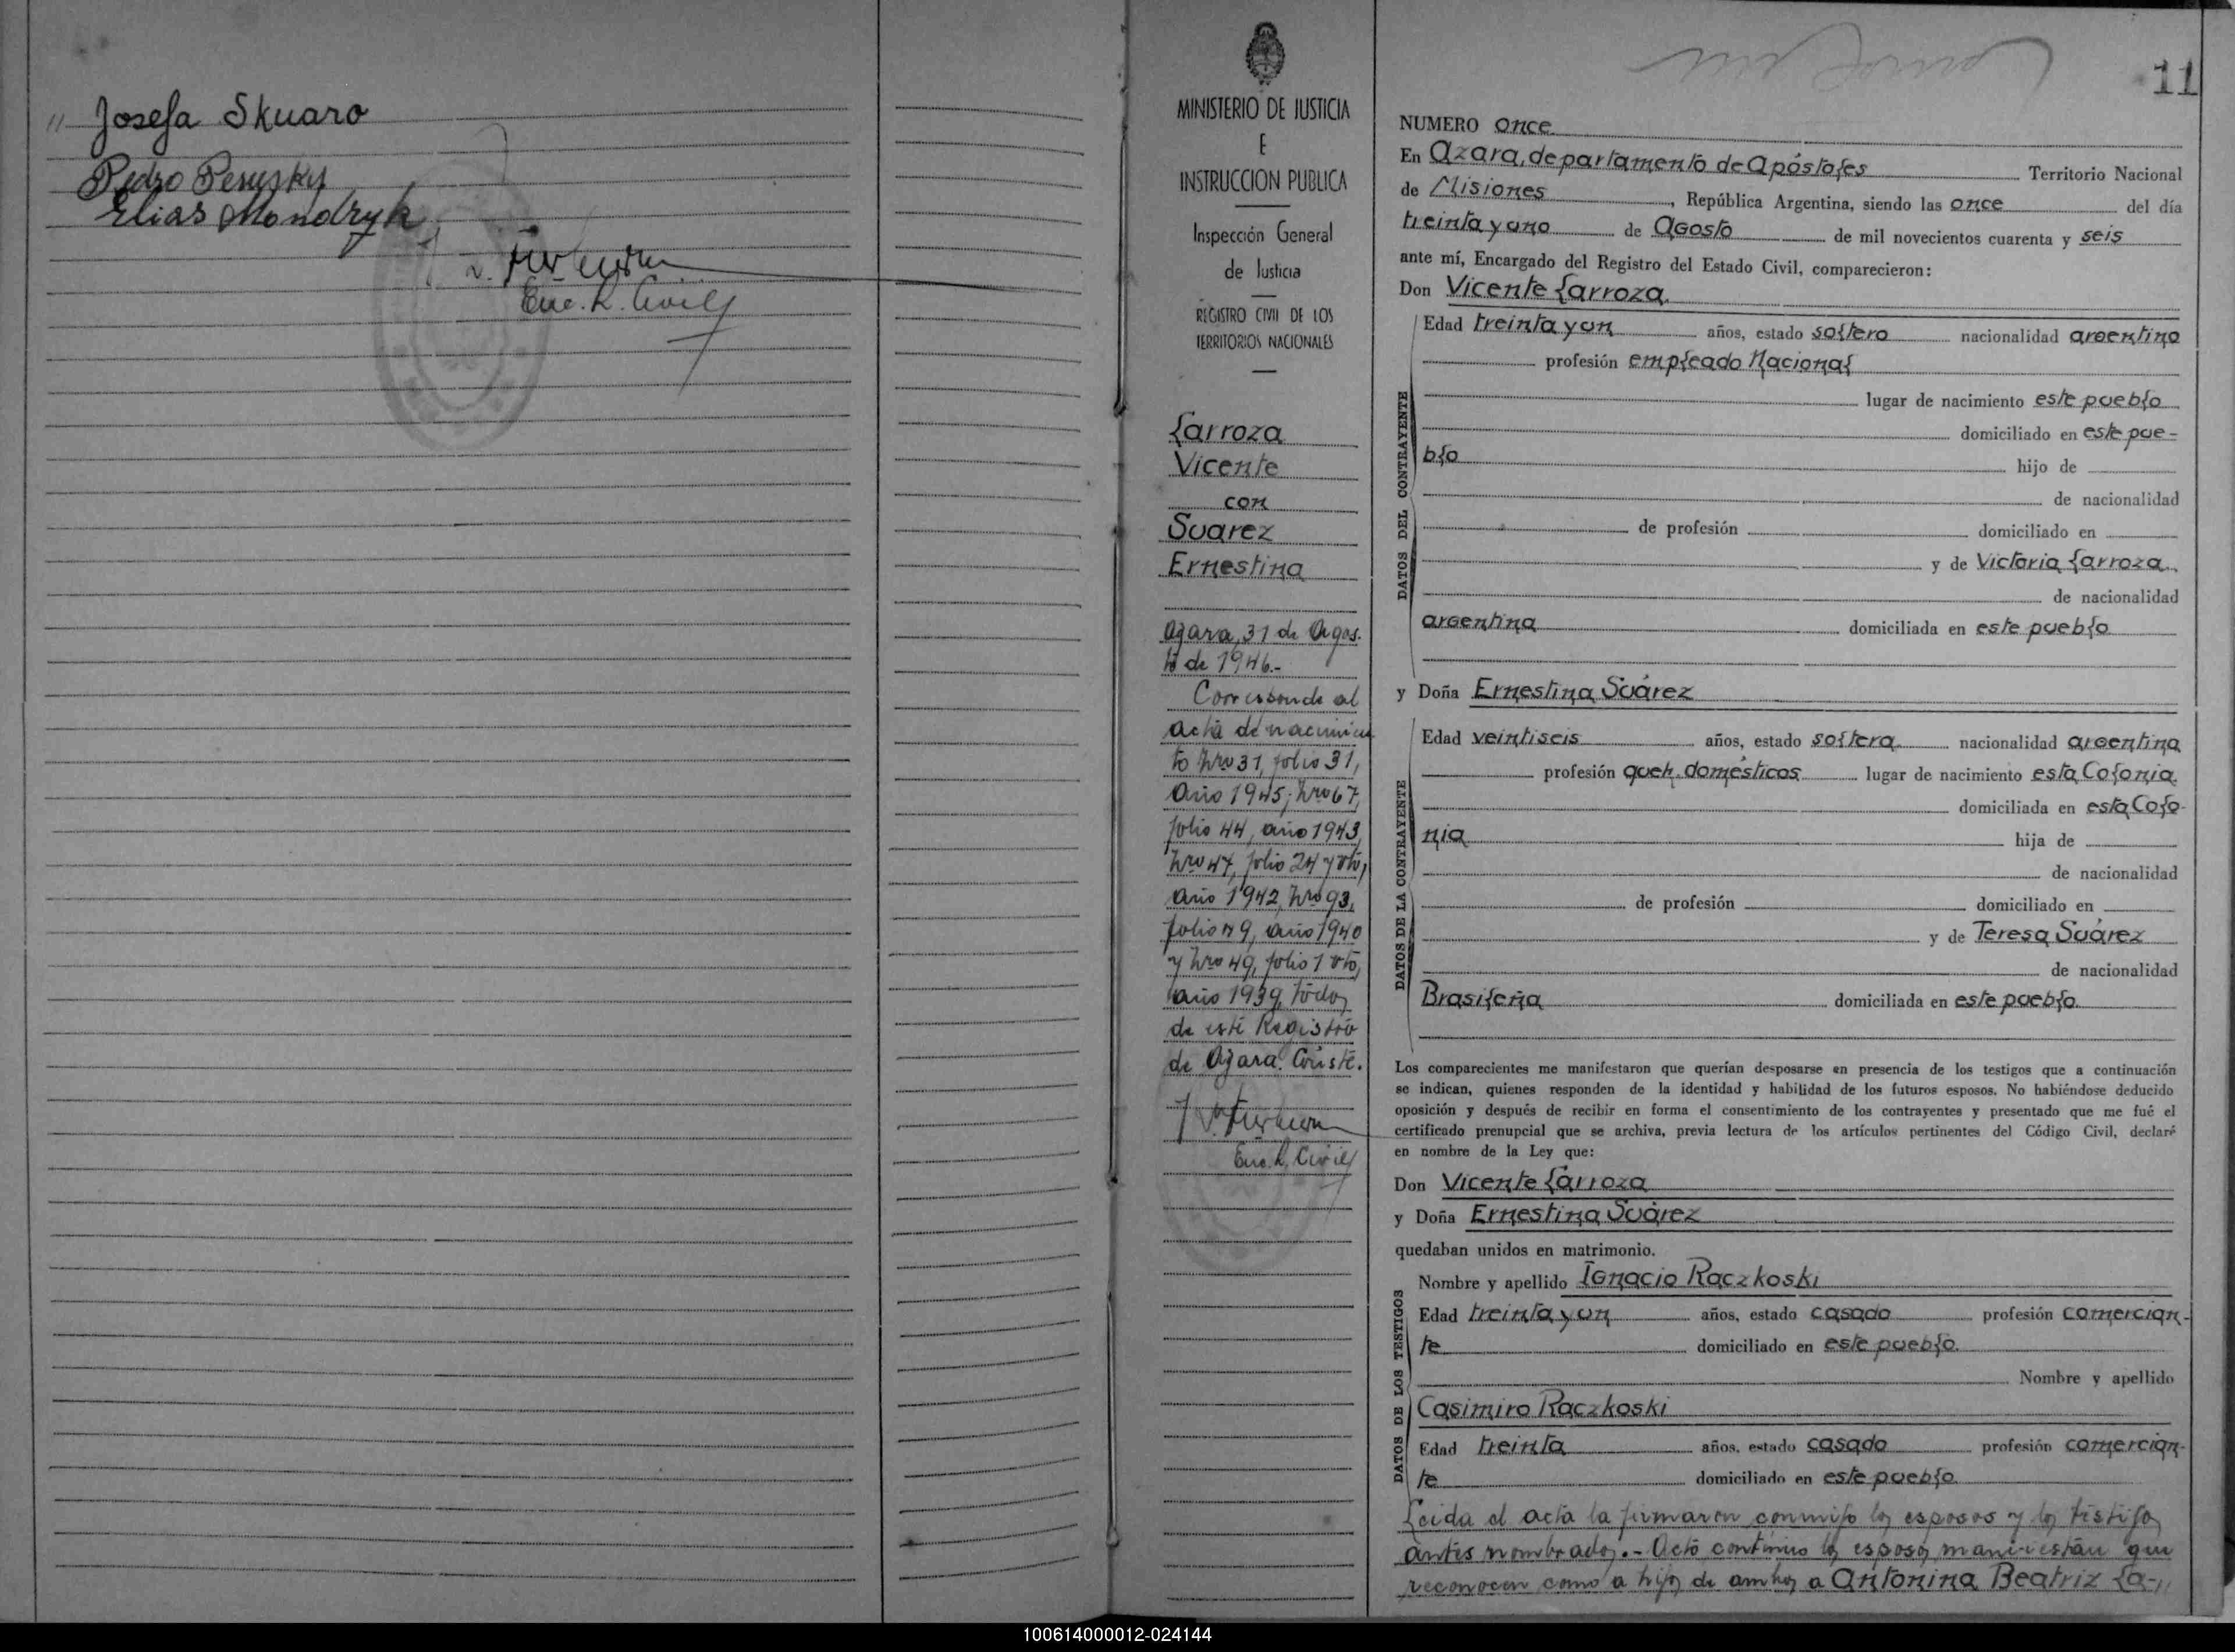 " Josefa Skuaro
Pedro Perysky
Elias Mondryk
Enc. R. Civil
MINISTERIO DE JUSTICIA
E
INSTRUCCION PUBLICA
Inspección General
de Justicia
REGISTRO CIVIL DE LOS
TERRITORIOS NACIONALES
Larroza
Vicente
con
Suarez
Ernestina
Azara, 31 de Agos-
to de 1946.-
Corresponde al
acta de nacimien
to Nro 31, folio 31,
año 1945; Nro 67,
folio 44, año 1943,
Nro 47, folio 24 y vto,
año 1942, Nro 93,
folio 49, año 1940
y Nro 49, folio 1 vto,
año 1939, todos
de este Registro
de Azara. Conste.
Enc. R. Civil
11
NUMERO once
En Azara, departamento de Apóstoles Territorio Nacional
de Misiones, República Argentina, siendo las once del día
treinta y uno de Agosto de mil novecientos cuarenta y seis
ante mí, Encargado del Registro del Estado Civil, comparecieron:
Don Vicente Larroza
DATOS DEL CONTRAYENTE
Edad treinta y un años, estado soltero nacionalidad argentino
profesión empleado Nacional
lugar de nacimiento este pueblo
domiciliado en este pue-
blo hijo de
de nacionalidad
de profesión domiciliado en
y de Victoria Larroza
de nacionalidad
argentina domiciliada en este pueblo
y Doña Ernestina Suárez
DATOS DE LA CONTRAYENTE
Edad veintiseis años, estado soltera nacionalidad argentina
profesión queh. domésticos lugar de nacimiento esta Colonia
domiciliada en esta Colo-
nia hija de
de nacionalidad
de profesión domiciliado en
y de Teresa Suárez
de nacionalidad
Brasileña domiciliada en este pueblo
Los comparecientes me manifestaron que querían desposarse en presencia de los testigos que a continuación
se indican, quienes responden de la identidad y habilidad de los futuros esposos. No habiéndose deducido
oposición y después de recibir en forma el consentimiento de los contrayentes y presentado que me fué el
certificado prenupcial que se archiva, previa lectura de los artículos pertinentes del Código Civil, declaré
en nombre de la Ley que:
Don Vicente Larroza
y Doña Ernestina Suárez
quedaban unidos en matrimonio.
DATOS DE LOS TESTIGOS
Nombre y apellido Ignacio Raczkoski
Edad treinta y un años, estado casado profesión comercian-
te domiciliado en este pueblo
Nombre y apellido
Casimiro Raczkoski
Edad treinta años, estado casado profesión comercian-
te domiciliado en este pueblo
Leida el acta la firmaron conmigo los esposos y los testigos
antes nombrados.- Acto continuo los esposos manifiestan que
reconocen como a hijos de ambos a Antonina Beatriz La-"
100614000012-024144